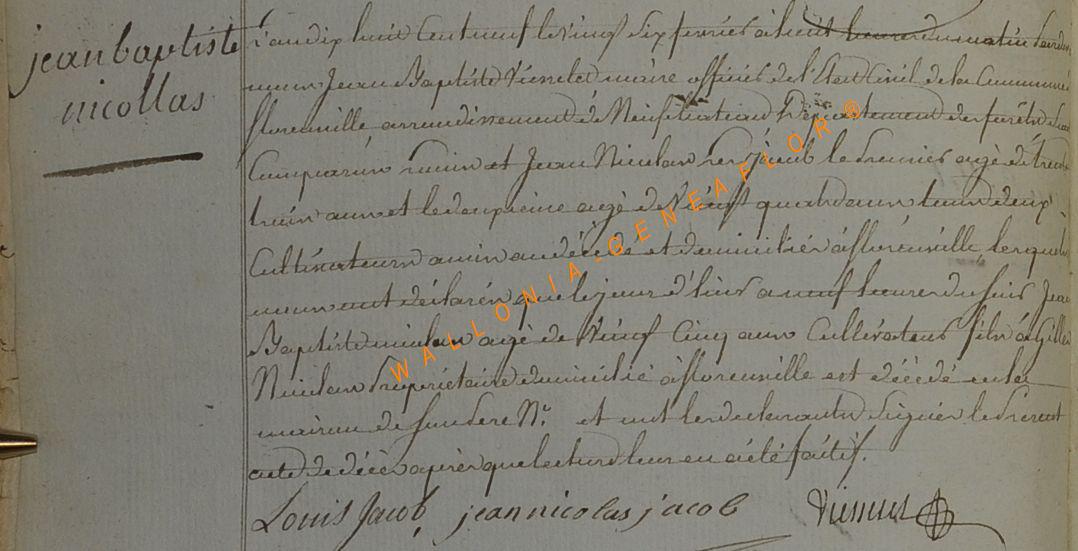 jean baptiste
nicollas
L'an dix huit cent neuf le vingt six fevrier à huit heures du matin
Jean Baptiste Viesslet maire officier de l'Etat Civil de la Commune
florenville arrondissement de Neufchateau Département des forêts
Comparün et Jean Nicolas Jacob le premier agé de trente
huit ans et le deuxieme agé de vingt quatre ans tous deux
Cultivateurs amis au décédé et domiciliés à florenville lesquels
nous ont déclarés que le jour d'hier a neuf heures du soir Jean
Baptiste nicolas agé de vingt Cinq ans Cultivateur fils de Gille
Nicolas Proprietaire domicilié à florenville est décédé en la
maison de Nr. et ont les declarants signés le présent
acte de décès après que lecture leur en a été faite.
Louis Jacob jean nicolas jacob
WALLONIA-GENEAFLOR ®